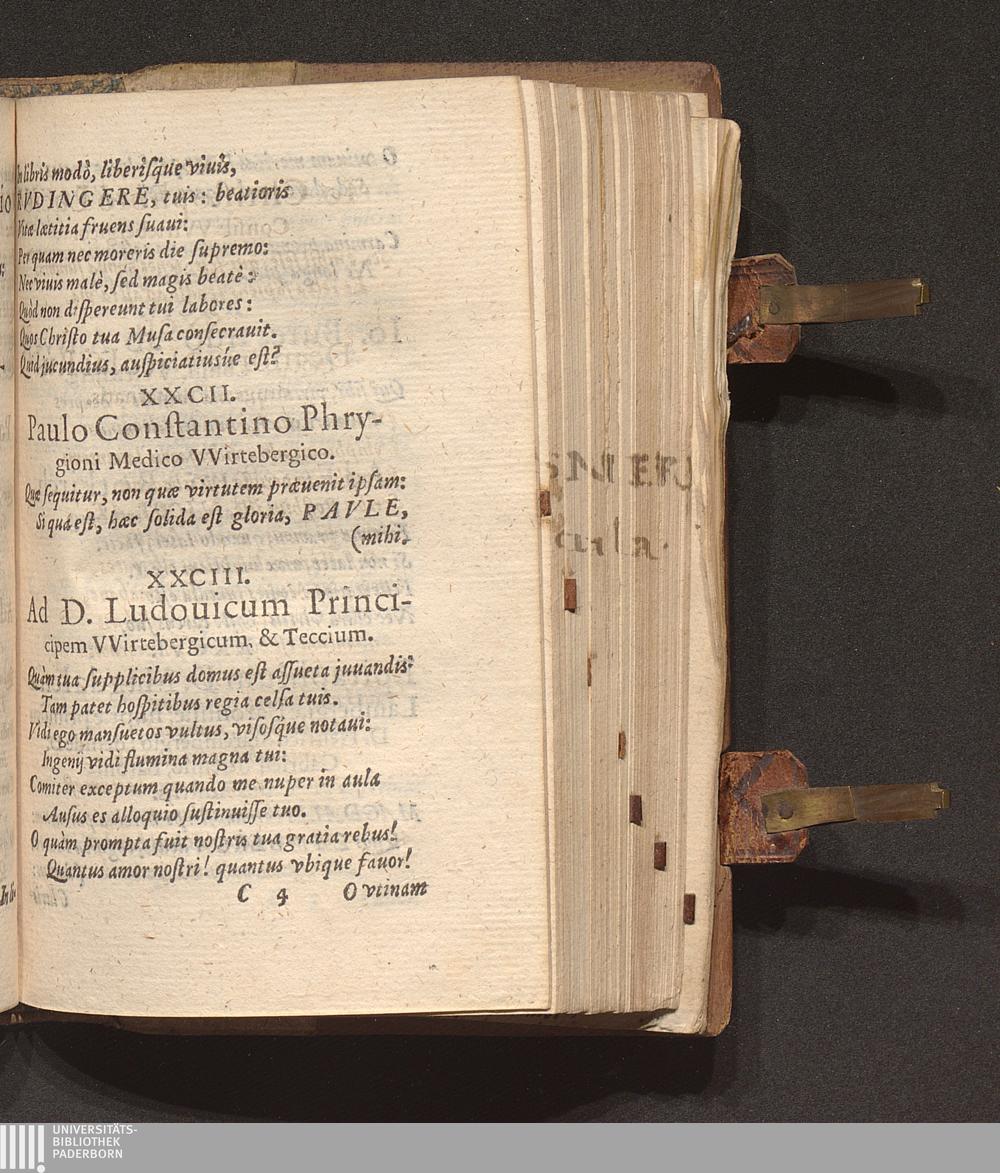 In libris modò, liberisq́ue viuis,
RVDINGERE, tuis: beatioris
Vitæ lætitia fruens suaui:
Per quam nec moreris die supremo:
Nec viuis malè, sed magis beatè:
Quòd non dispereunt tui labores:
Quos Christo tua Musa consecrauit.
Quid jucundius, auspiciatiusúe est?
XXCII.
Paulo Constantino Phry-
gioni Medico VVirtebergico.
Quæ sequitur, non quæ virtutem præuenit ipsam:
Si qua est, hæc solida est gloria, PAVLE,
(mihi.
XXCIII.
Ad D. Ludouicum Princi-
cipem VVirtebergicum, & Teccium.
Quàm tua supplicibus domus est assueta juuandis?
Tam patet hospitibus regia celsa tuis.
Vidi ego mansuetos vultus, visosq́ue notaui:
Ingenij vidi flumina magna tui:
Comiter exceptum quando me nuper in aula
Ausus es alloquio sustinuisse tuo.
O quàm prompta fuit nostris tua gratia rebus!
Quantus amor nostri! quantus vbique fauor!
C 4 O vtinam
UNIVERSITÄTS-
BIBLIOTHEK
PADERBORN